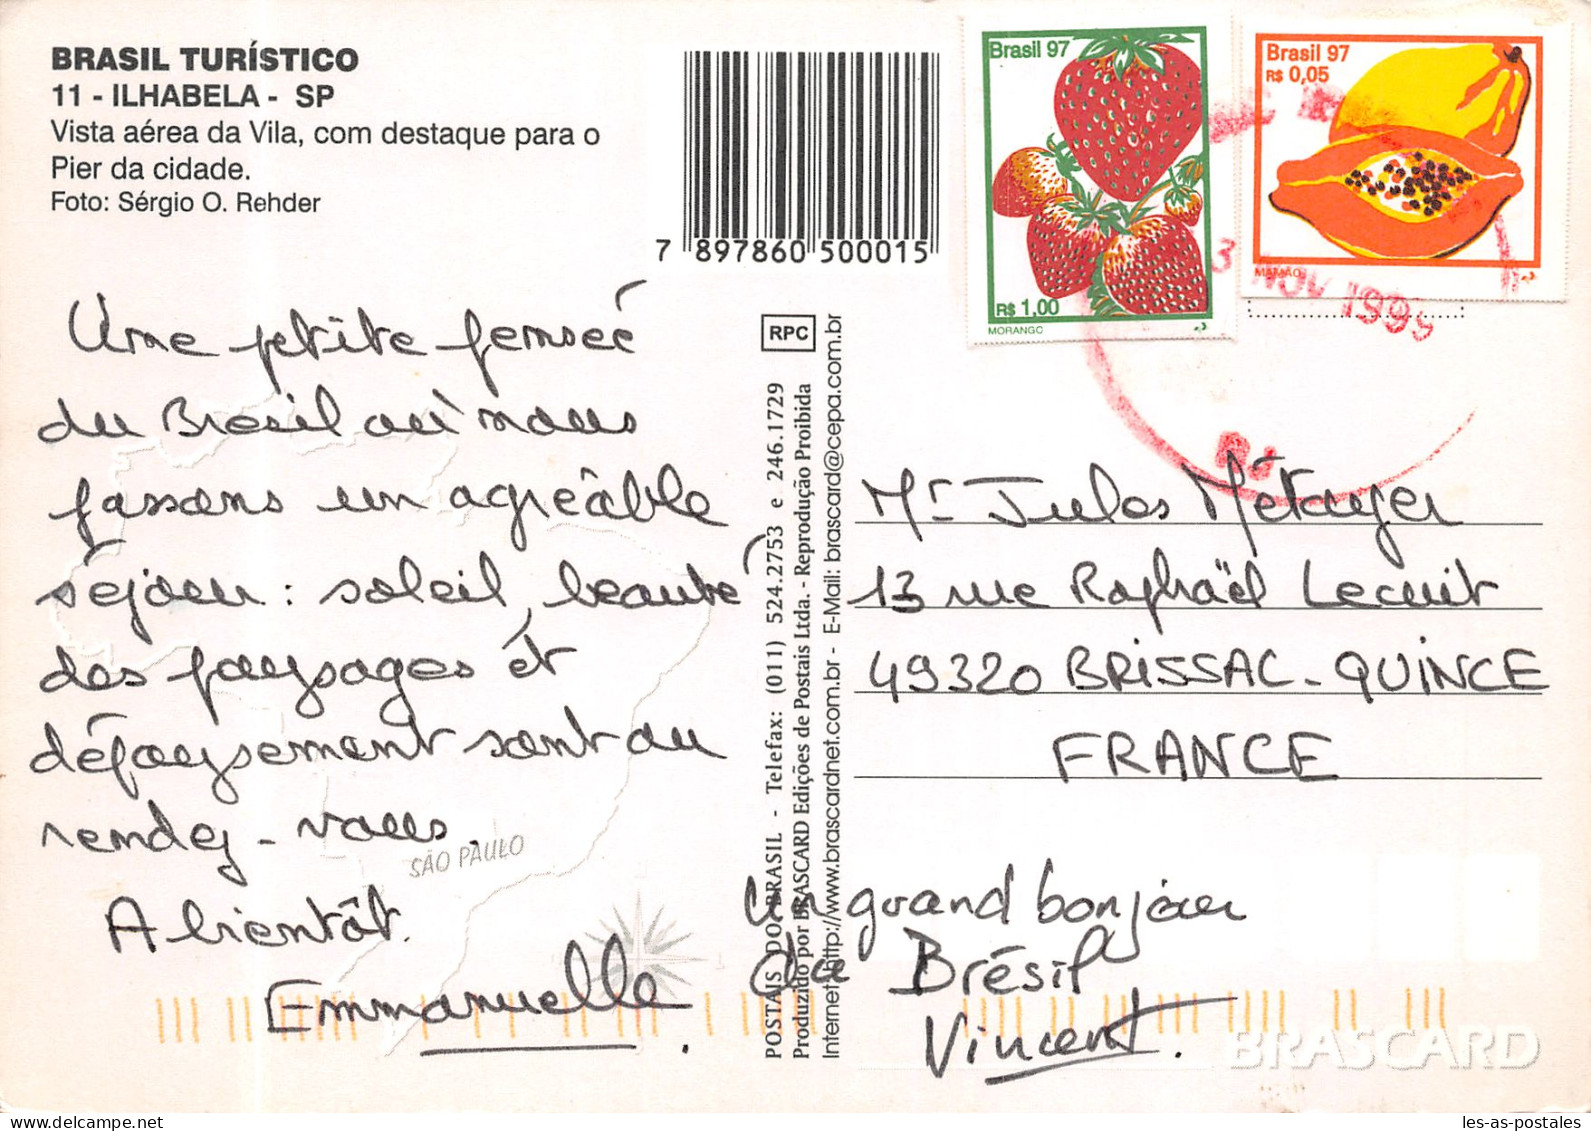 BRASIL TURÍSTICO
11 - ILHABELA - SP
Vista aérea da Vila, com destaque para o
Pier da cidade.
Foto: Sérgio O. Rehder
7 897860 500015
Brasil 97
R$ 1,00
MORANGO
Brasil 97
R$ 0,05
MAMÃO
3 NOV 1998
RJ
Une petite pensée
du Brésil où nous
passons un agréable
séjour : soleil, beauté
des paysages et
dépaysement sont au
rendez-vous.
A bientôt.
Emmanuelle.
SÃO PAULO
RPC
POSTAIS DO BRASIL - Telefax: (011) 524.2753 e 246.1729
Produzido por BRASCARD Edições de Postais Ltda. - Reprodução Proibida
Internet http://www.brascardnet.com.br - E-Mail: brascard@cepa.com.br
Mr Jules Métayer
13 rue Raphaël Lecuit
49320 BRISSAC-QUINCE
FRANCE
Un grand bonjour
du Brésil
Vincent.
BRASCARD
les-as-postales - Delcampe.net